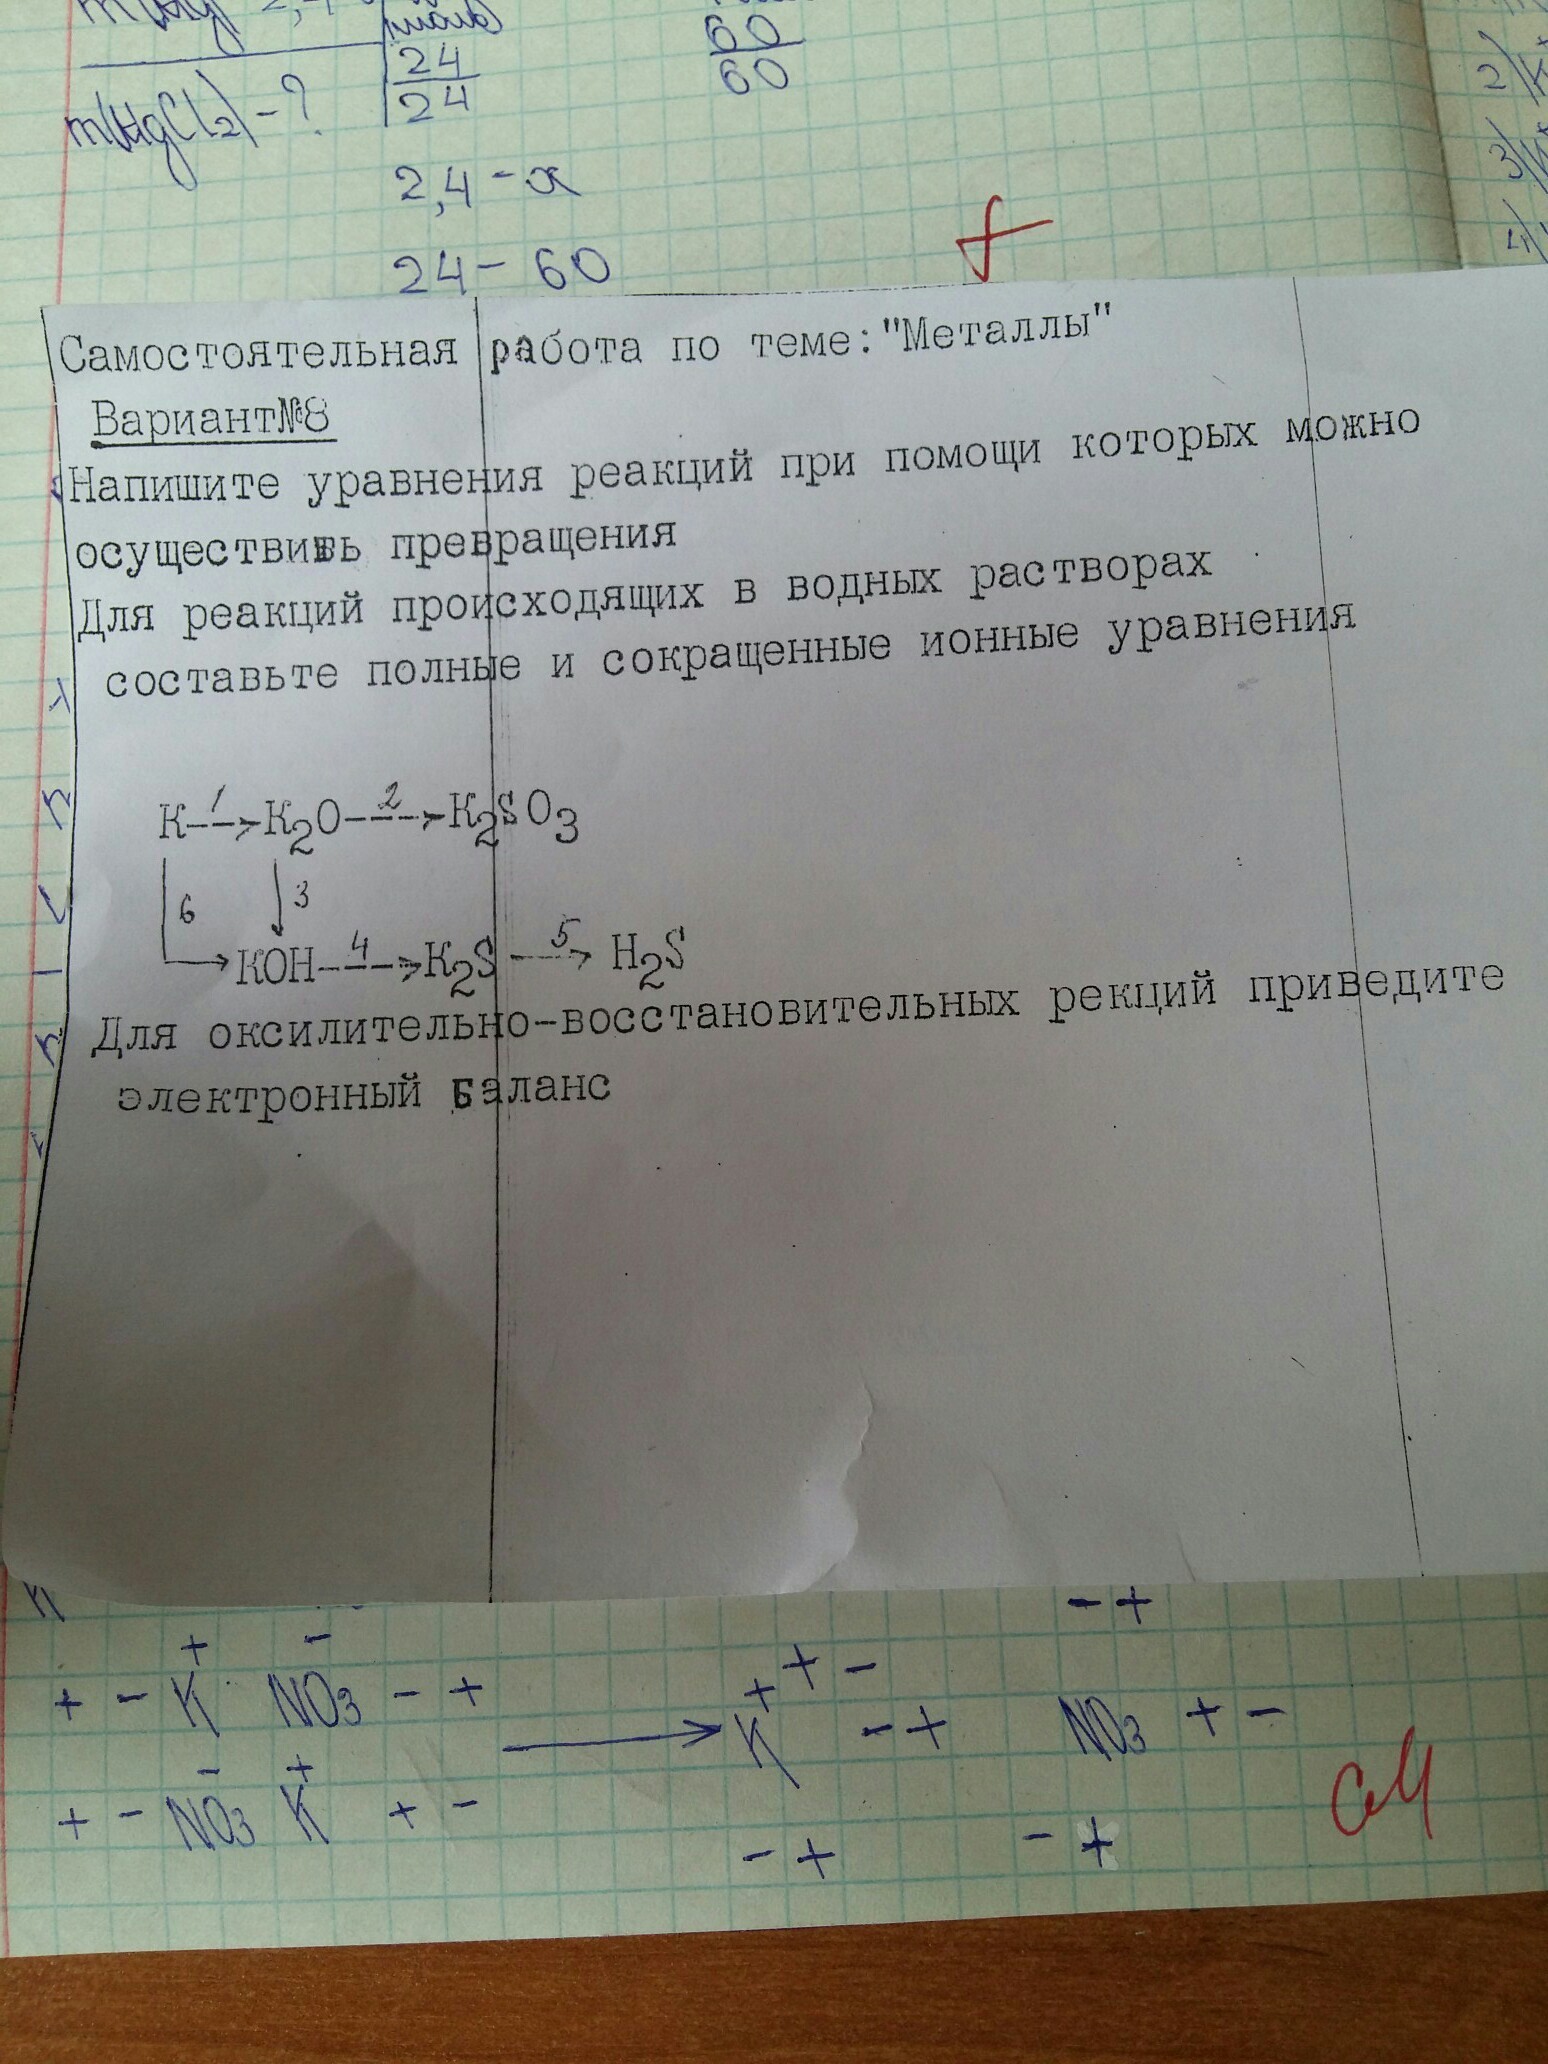 24
24
60
60
m(HgCl2) - ?
2,4 - x
24 - 60
2)
3)
4)
Самостоятельная работа по теме:"Металлы"
Вариант№8
Напишите уравнения реакций при помощи которых можно
осуществить превращения
Для реакций происходящих в водных растворах
составьте полные и сокращенные ионные уравнения
K--1-->K2O--2-->K2SO3
6 3
KOH--4-->K2S--5--> H2S
Для оксилительно-восстановительных рекций приведите
электронный баланс
- +
+ - + + -
+ - K NO3 - + → K - + NO3 + -
- +
+ - NO3 K + - - + - +
см